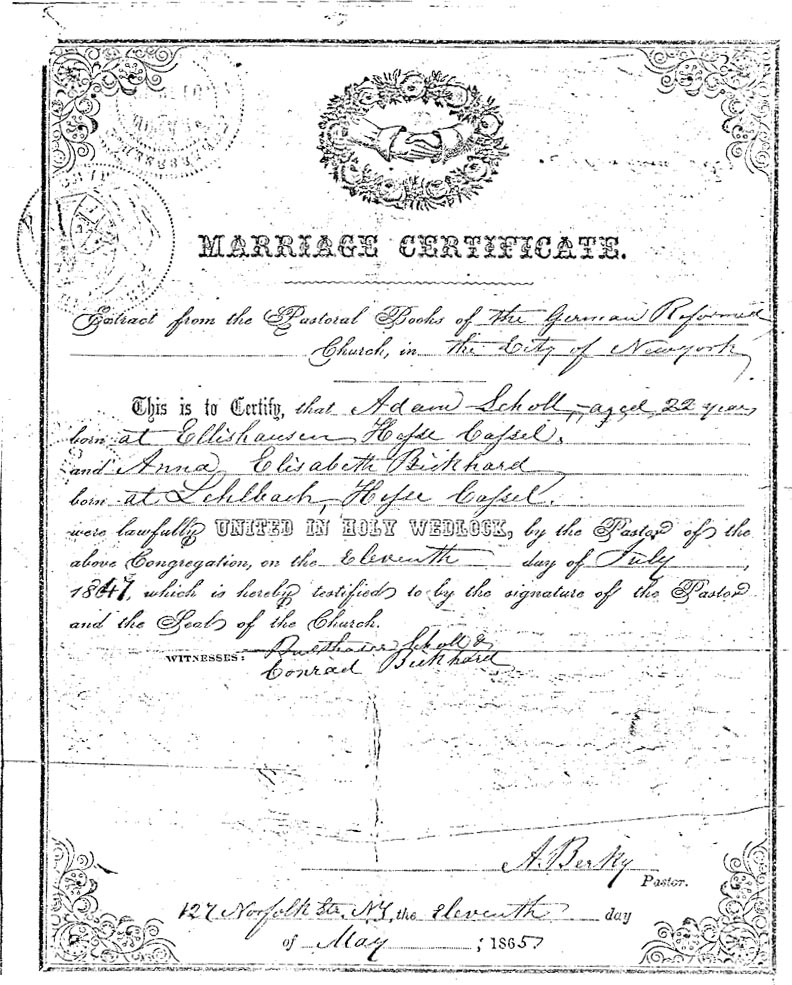 MARRIAGE CERTIFICATE.
Extract from the Pastoral Books of the German Reformed
Church, in the City of Newyork,
This is to Certify, that Adam Scholl, aged 22 years,
born at Ellishausen, Hesse Cassel.
and Anna Elisabeth Bickhard
born at Lehlbach, Hesse Cassel.
were lawfully UNITED IN HOLY WEDLOCK, by the Pastor of the
above Congregation, on the Eleventh day of July,
1847, which is hereby testified to by the signature of the Pastor
and the Seal of the Church.
WITNESSES: Scholl &
Conrad Bickhard
A. Berky
Pastor.
127 Norfolk Str. N.Y. the Eleventh day
of May ; 1865